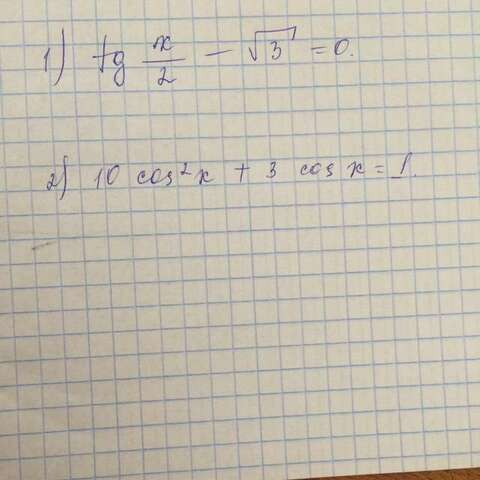 1) tg x/2 - √3 = 0.
2) 10 cos²x + 3 cos x = 1.